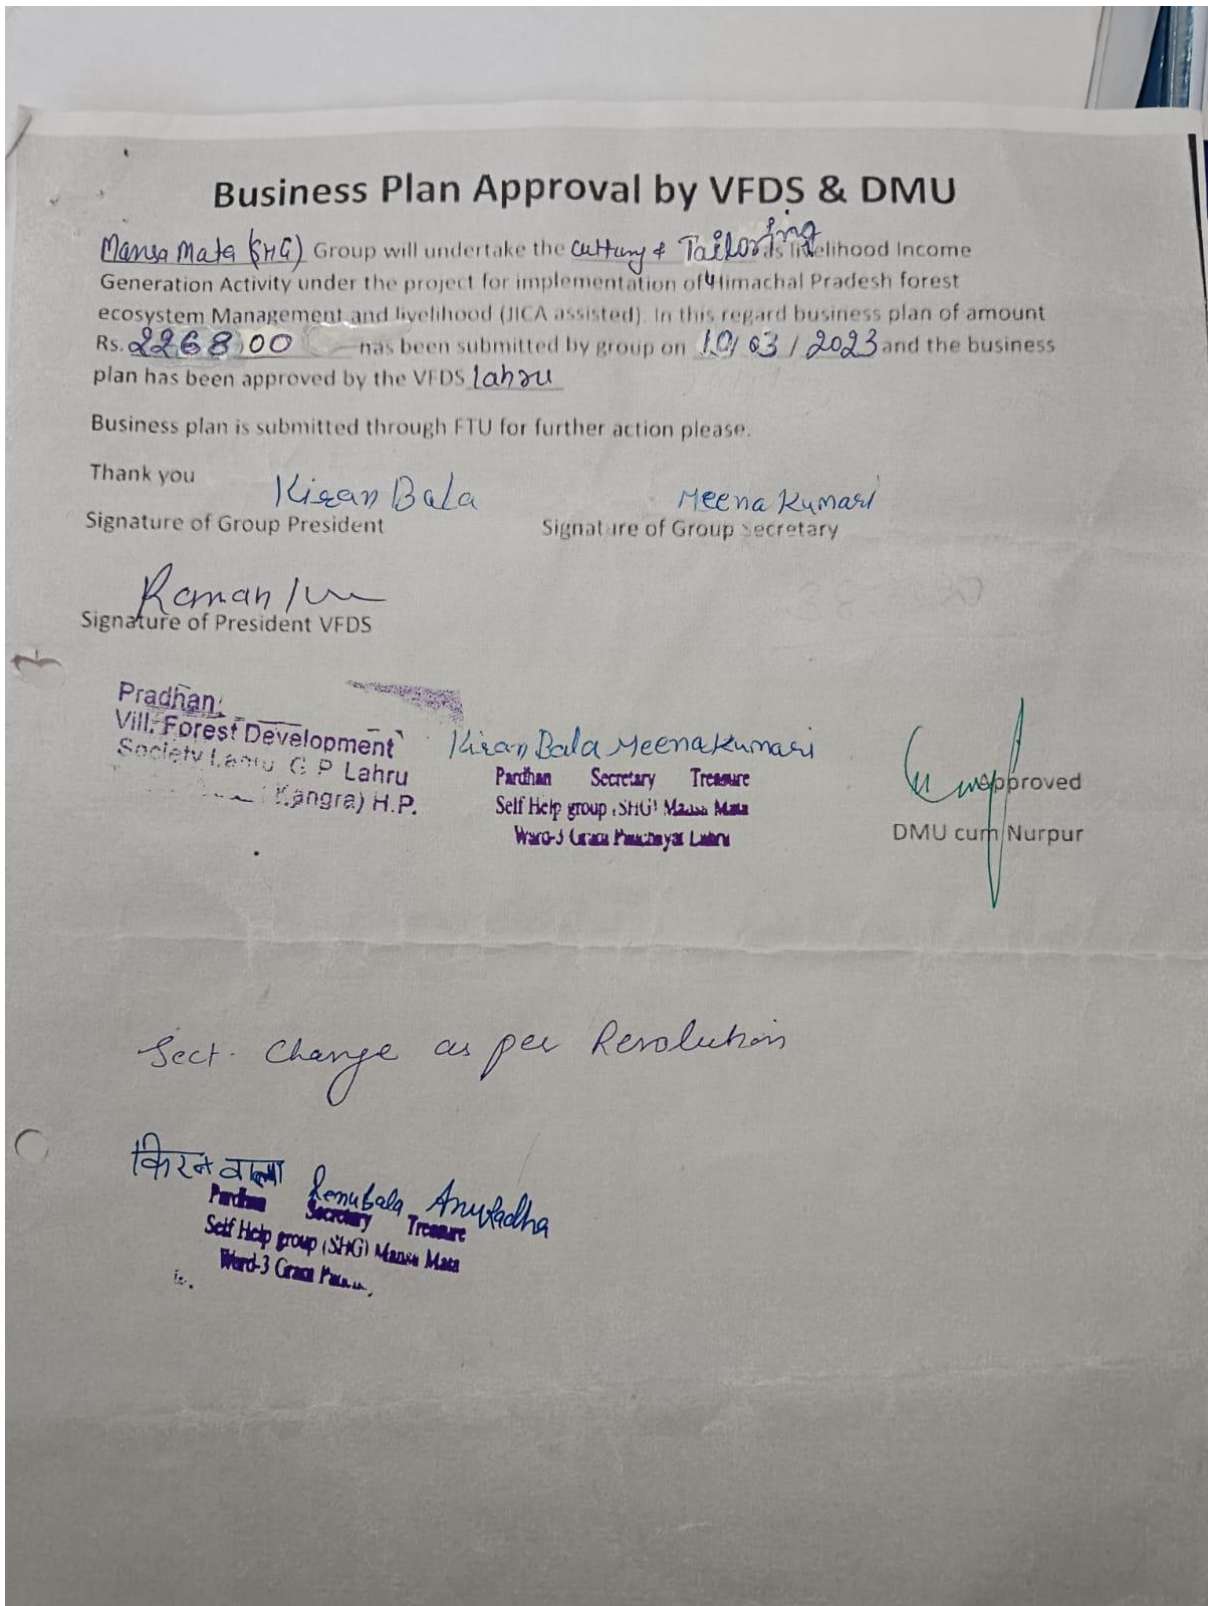 Business Plan Approval by VFDS & DMU
Mansa Mata (SHG) Group will undertake the Cutting & Tailoring as livelihood Income
Generation Activity under the project for implementation of Himachal Pradesh forest
ecosystem Management and livelihood (JICA assisted). In this regard business plan of amount
Rs. 226800 has been submitted by group on 10/03/2023 and the business
plan has been approved by the VFDS Lahru
Business plan is submitted through FTU for further action please.
Thank you
Kiran Bala Meena Kumari
Signature of Group President Signature of Group Secretary
Raman
Signature of President VFDS
Pradhan,
Vill. Forest Development
Society Lahru G P Lahru
(Kangra) H.P.
Kiran Bala Meena Kumari
Pardhan Secretary Treasure
Self Help group (SHG) Mansa Mata
Ward-3 Gram Panchayat Lahru
Approved
DMU cum Nurpur
Sect. Change as per Resolution
किरन बाला Renubala Anuradha
Pardhan Secretary Treasure
Self Help group (SHG) Mansa Mata
Ward-3 Gram